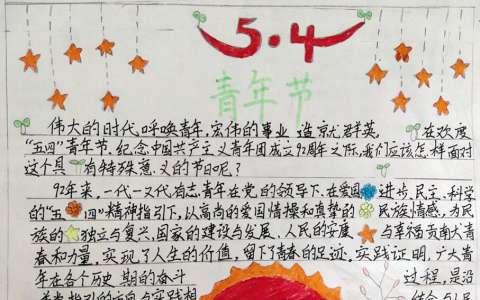 5.4
青年节
伟大的时代呼唤青年,宏伟的事业 造就群英, 在欢度
“五四”青年节.纪念中国共产主义青年团成立92周年之际,我们应该怎样面对
这个具 有特殊意 义的节日呢?
92年来,一代一又代有志青年在党的领导下.在爱国 进步,民主、科学
的“五 四”精神指引下,以高尚的爱国情操和真挚的 民族情感,为民
族的 独立与复兴,国家的建设与发展、人民的安康 与幸福贡南犬青
春和力量,实现了人生的价值,留下了青春的足迹.实践证明,广大青
年在各个历史 期的奋斗 过程,是沿